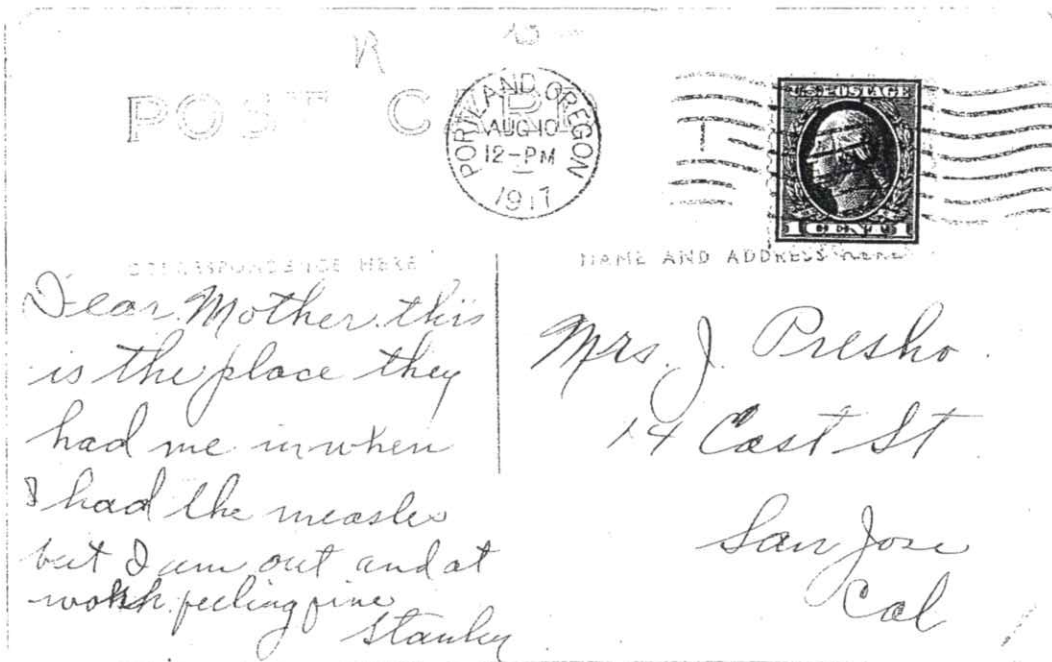 POST CARD
PORTLAND OREGON
AUG 10
12-PM
1917
U.S. POSTAGE
1 CENT 1
CORRESPONDENCE HERE
NAME AND ADDRESS HERE
Dear Mother this
is the place they
had me in when
I had the measles
but I am out and at
work feeling fine
Stanley
Mrs. J. Presho
14 East St
San Jose
Cal